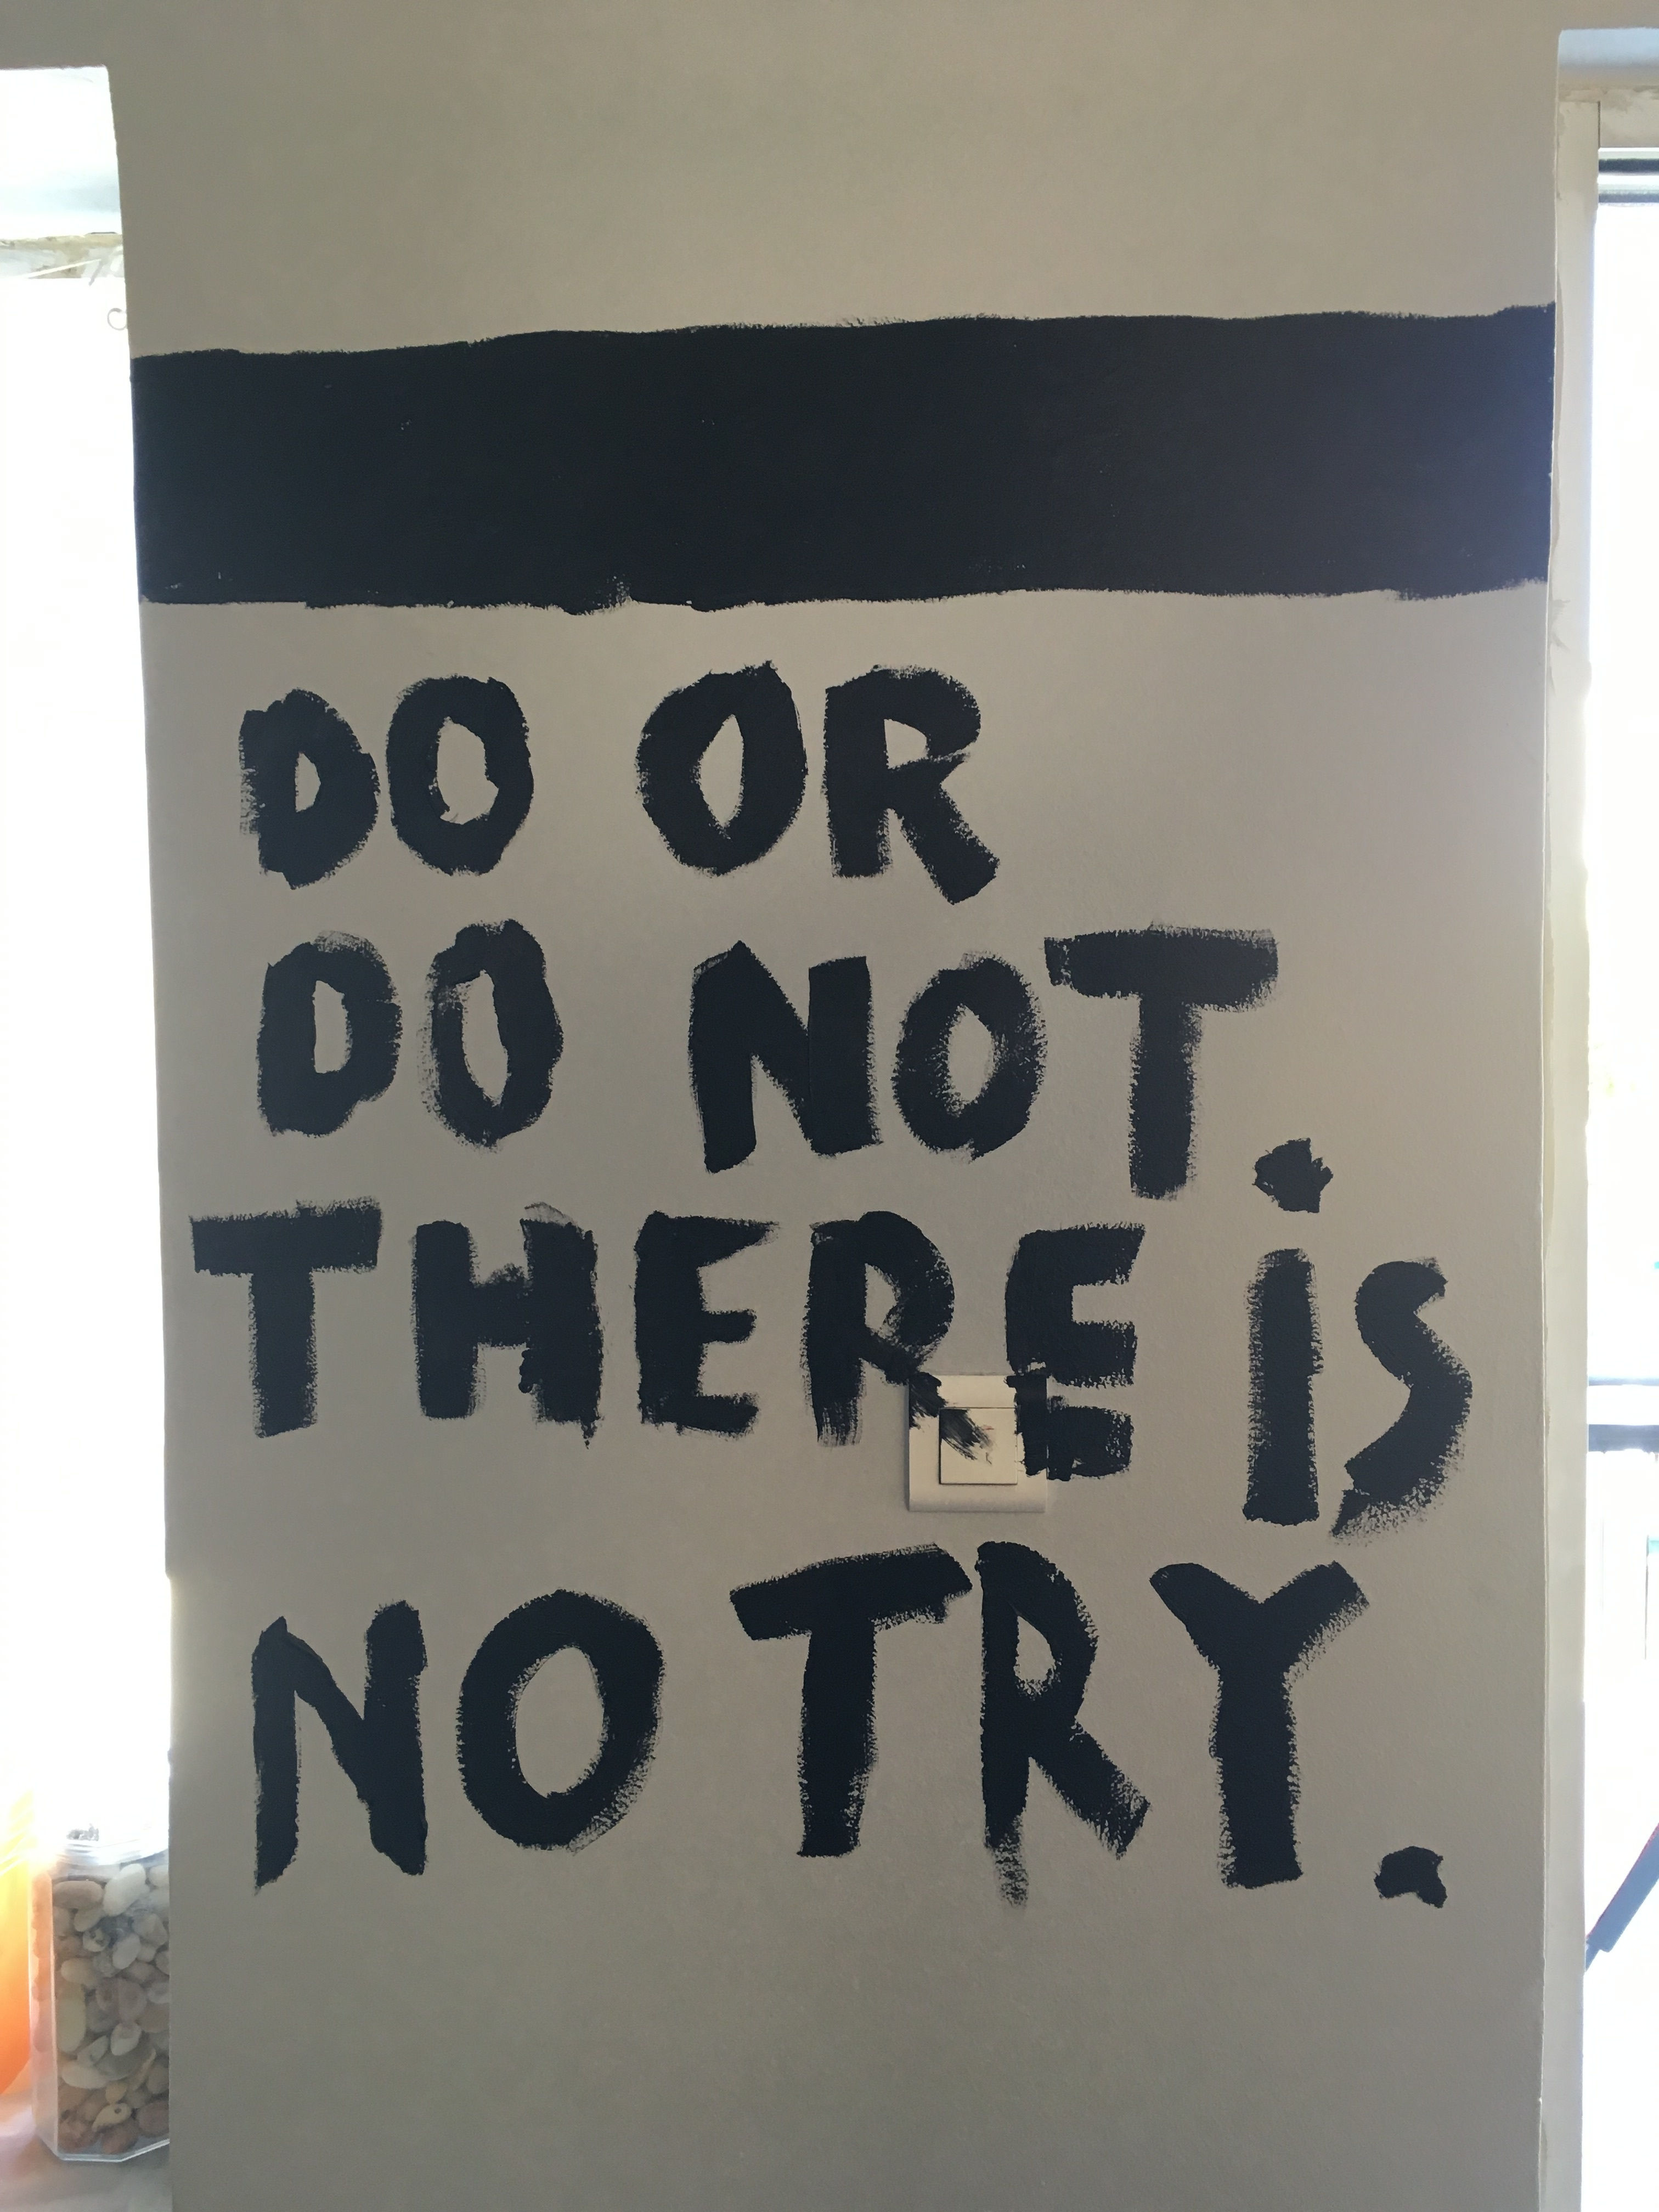 DO OR
DO NOT.
THERE IS
NO TRY.